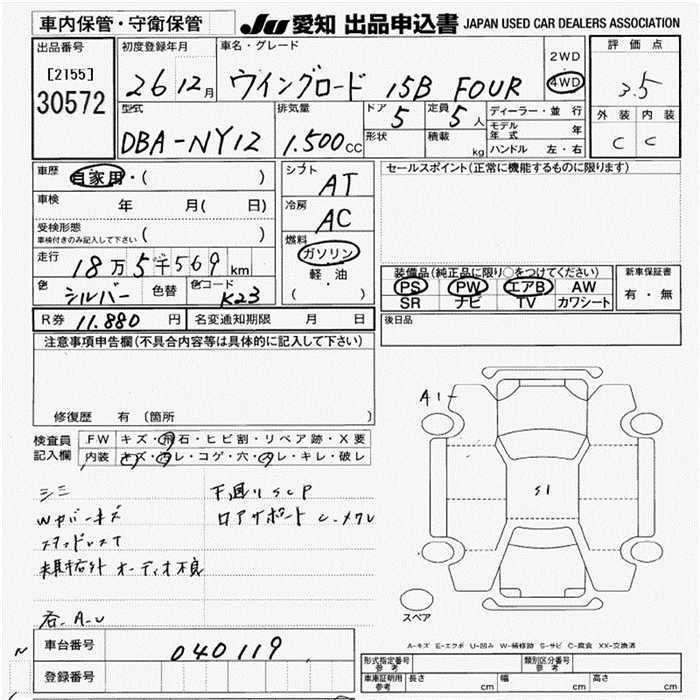 車内保管・守衛保管
JU 愛知 出品申込書 JAPAN USED CAR DEALERS ASSOCIATION
出品番号 初度登録年月 車名・グレード 2WD 4WD 評価点
[2155]
30572
26 12月 ウイングロード 15B FOUR 3.5
型式 排気量 ドア 定員 ディーラー・並行 外装 内装
DBA-NY12 1.500CC 5 5人 モデル年式 年
形状 積載 kg ハンドル 左・右 C C
車歴 自家用・( ) シフト AT セールスポイント(正常に機能するものに限ります)
車検 年 月( 日) 冷房 AC
受検形態 ( )
車検付きのみ記入して下さい
燃料 ガソリン
軽・油
( )
走行 18万5千569km
色 シルバー 色替 色コード K23
装備品(純正品に限り○をつけてください) 新車保証書
PS PW エアB AW 有・無
SR ナビ TV カワシート
R券 11.880 円 名変通知期限 月 日 後日品
注意事項申告欄(不具合内容等は具体的に記入して下さい)
修復歴 有(箇所 )
A1
S1
検査員記入欄 FW キズ・飛石・ヒビ割・リペア跡・X要
内装 キズ・汚レ・コゲ・穴・スレ・キレ・破レ
シミ 下廻りSCP
Wカバーキズ ロアサポート
スタッドレス
オーディオ不良
各A.U
スペア
A-キズ E-エクボ U-凹み W-補修跡 S-サビ C-腐食 XX-交換済
車台番号 040119
登録番号
形式指定番号 参考 類別区分番号 参考
車庫証明用 参考 長さ cm 幅 cm 高さ cm